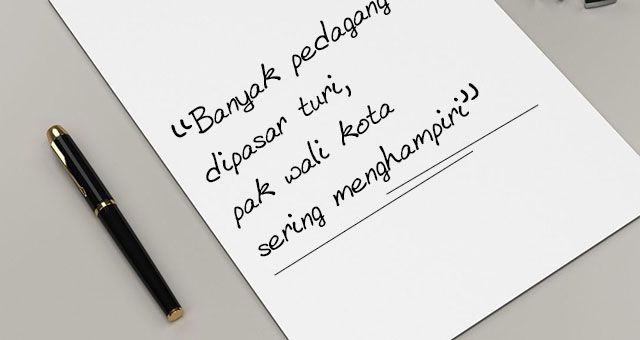 “Banyak pedagang
dipasar turi,
pak wali kota
sering menghampiri”